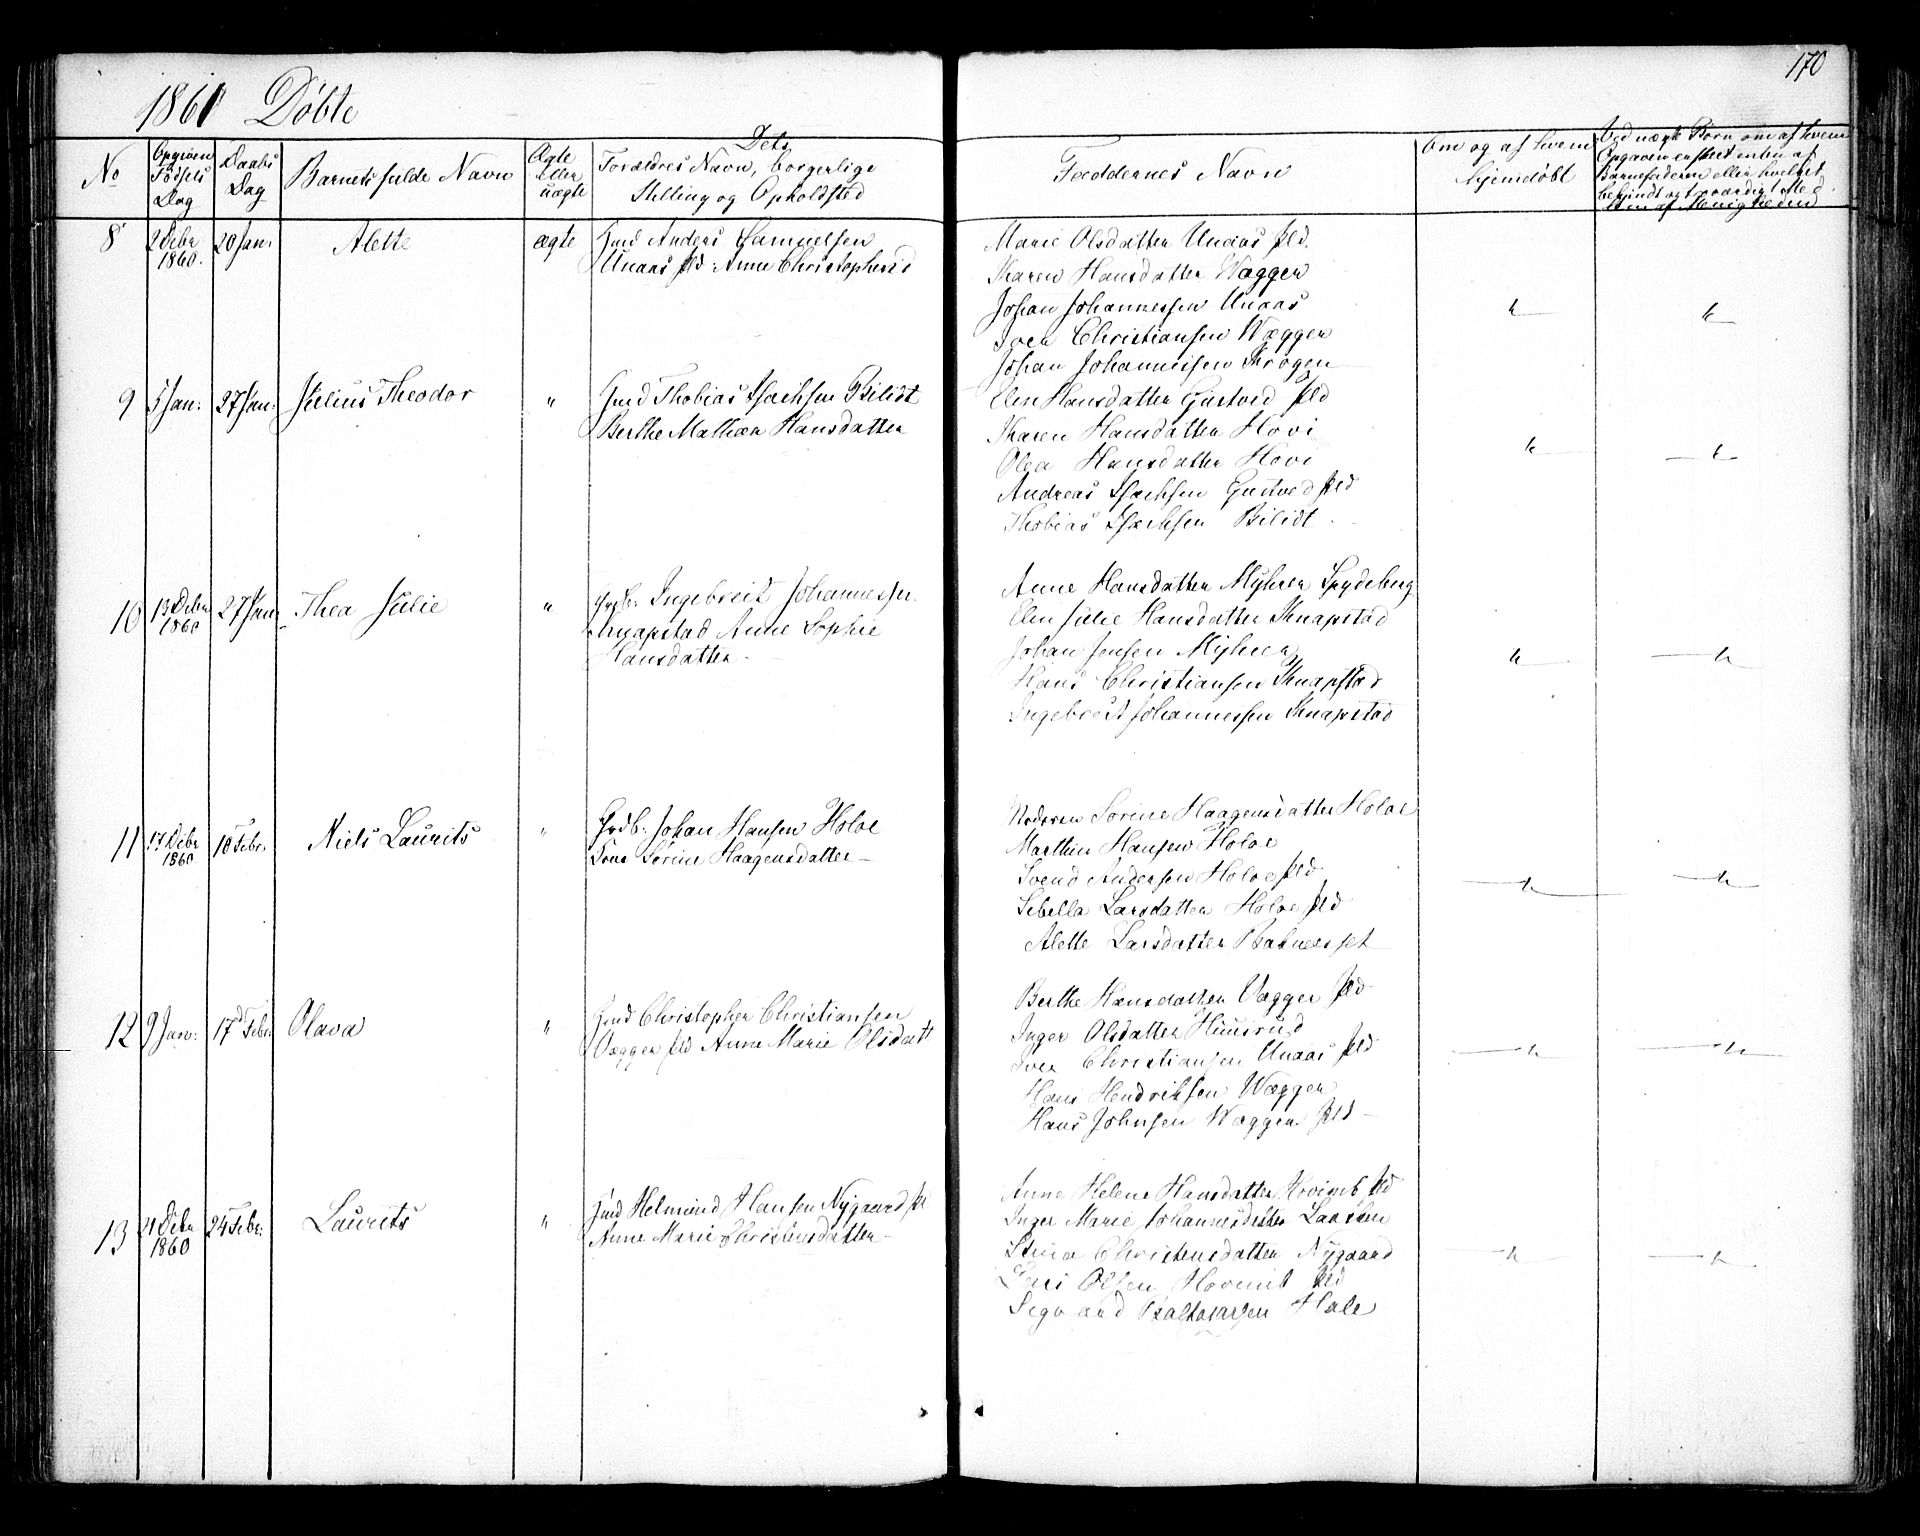 170
1861 Döbte
No
Opgiven Födsels Dag
Daabs Dag
Barnets fulde Navn
Ægte eller uægte
Dets
Forældres Navn, borgerlige
Stilling og Opholdsted
Faddernes Navn
Om og af hvem
hjemdöbt
Ved uægte Börn om af hvem
Opgaven enten af
Barnefaderen eller hvilket
8 2 Debr 1860. 20 Jan: Alette ægte Gmd Anders Samuelsen
Unaas pld: Anne Christophersd
Marie Olsdatter Unaas pld.
Karen Hansdatter Wægger
Johan Johannessen Unaas
Iver Christiansen Wægger
Johan Johannessen Krogen
9 5 Jan: 27 Jan: Julius Theodor " Gmd Thobias Isachsen Bilidt
Berthe Mathea Hansdatter
Elen Hansdatter Gustved pld
Karen Hansdatter Hovi
Olea Hansdatter Hovi
Andreas Isachsen Gustved pld
Thobias Isachsen Bilidt
10 13 Debr 1860 27 Jan: Thea Julie " Grdb: Ingebreit Johannessen
Knapstad Anne Sophie
Hansdatter
Anne Hansdatter Myhrer Spydeberg
Elen Julie Hansdatter Knapstad
Johan Jensen Myhrer
Hans Christiansen Knapstad
Ingebreit Johannessen Knapstad
11 17 Debr 1860 10 Febr. Niels Laurits " Grdb: Johan Hansen Holoe
Sörine Haagensdatter
Moderen Sörine Haagensdatter Holoe
Marthin Hansen Holoe
Svend Andersen Holoe pld
Sebella Larsdatter Holoe pld
Alette Larsdatter
12 9 Jan: 17d Febr. Olava " Gmd Christopher Christiansen
Vægger pld Anne Marie Olsdatt
Berthe Hansdatter Vægger pld
Inger Olsdatter
Iver Christiansen Unaas pld
Hans Hendriksen Wægger
Hans Johnsen Wægger pld
13 21 Debr 1860 24 Febr. Laurits " Gmd Helmund Hansen Nygaard pl
Anne Marie Christensdatter
Anne Helene Hansdatter pld
Inger Marie Johannesdatter
Stina Christensdatter Nygaard
Lars Olsen pld